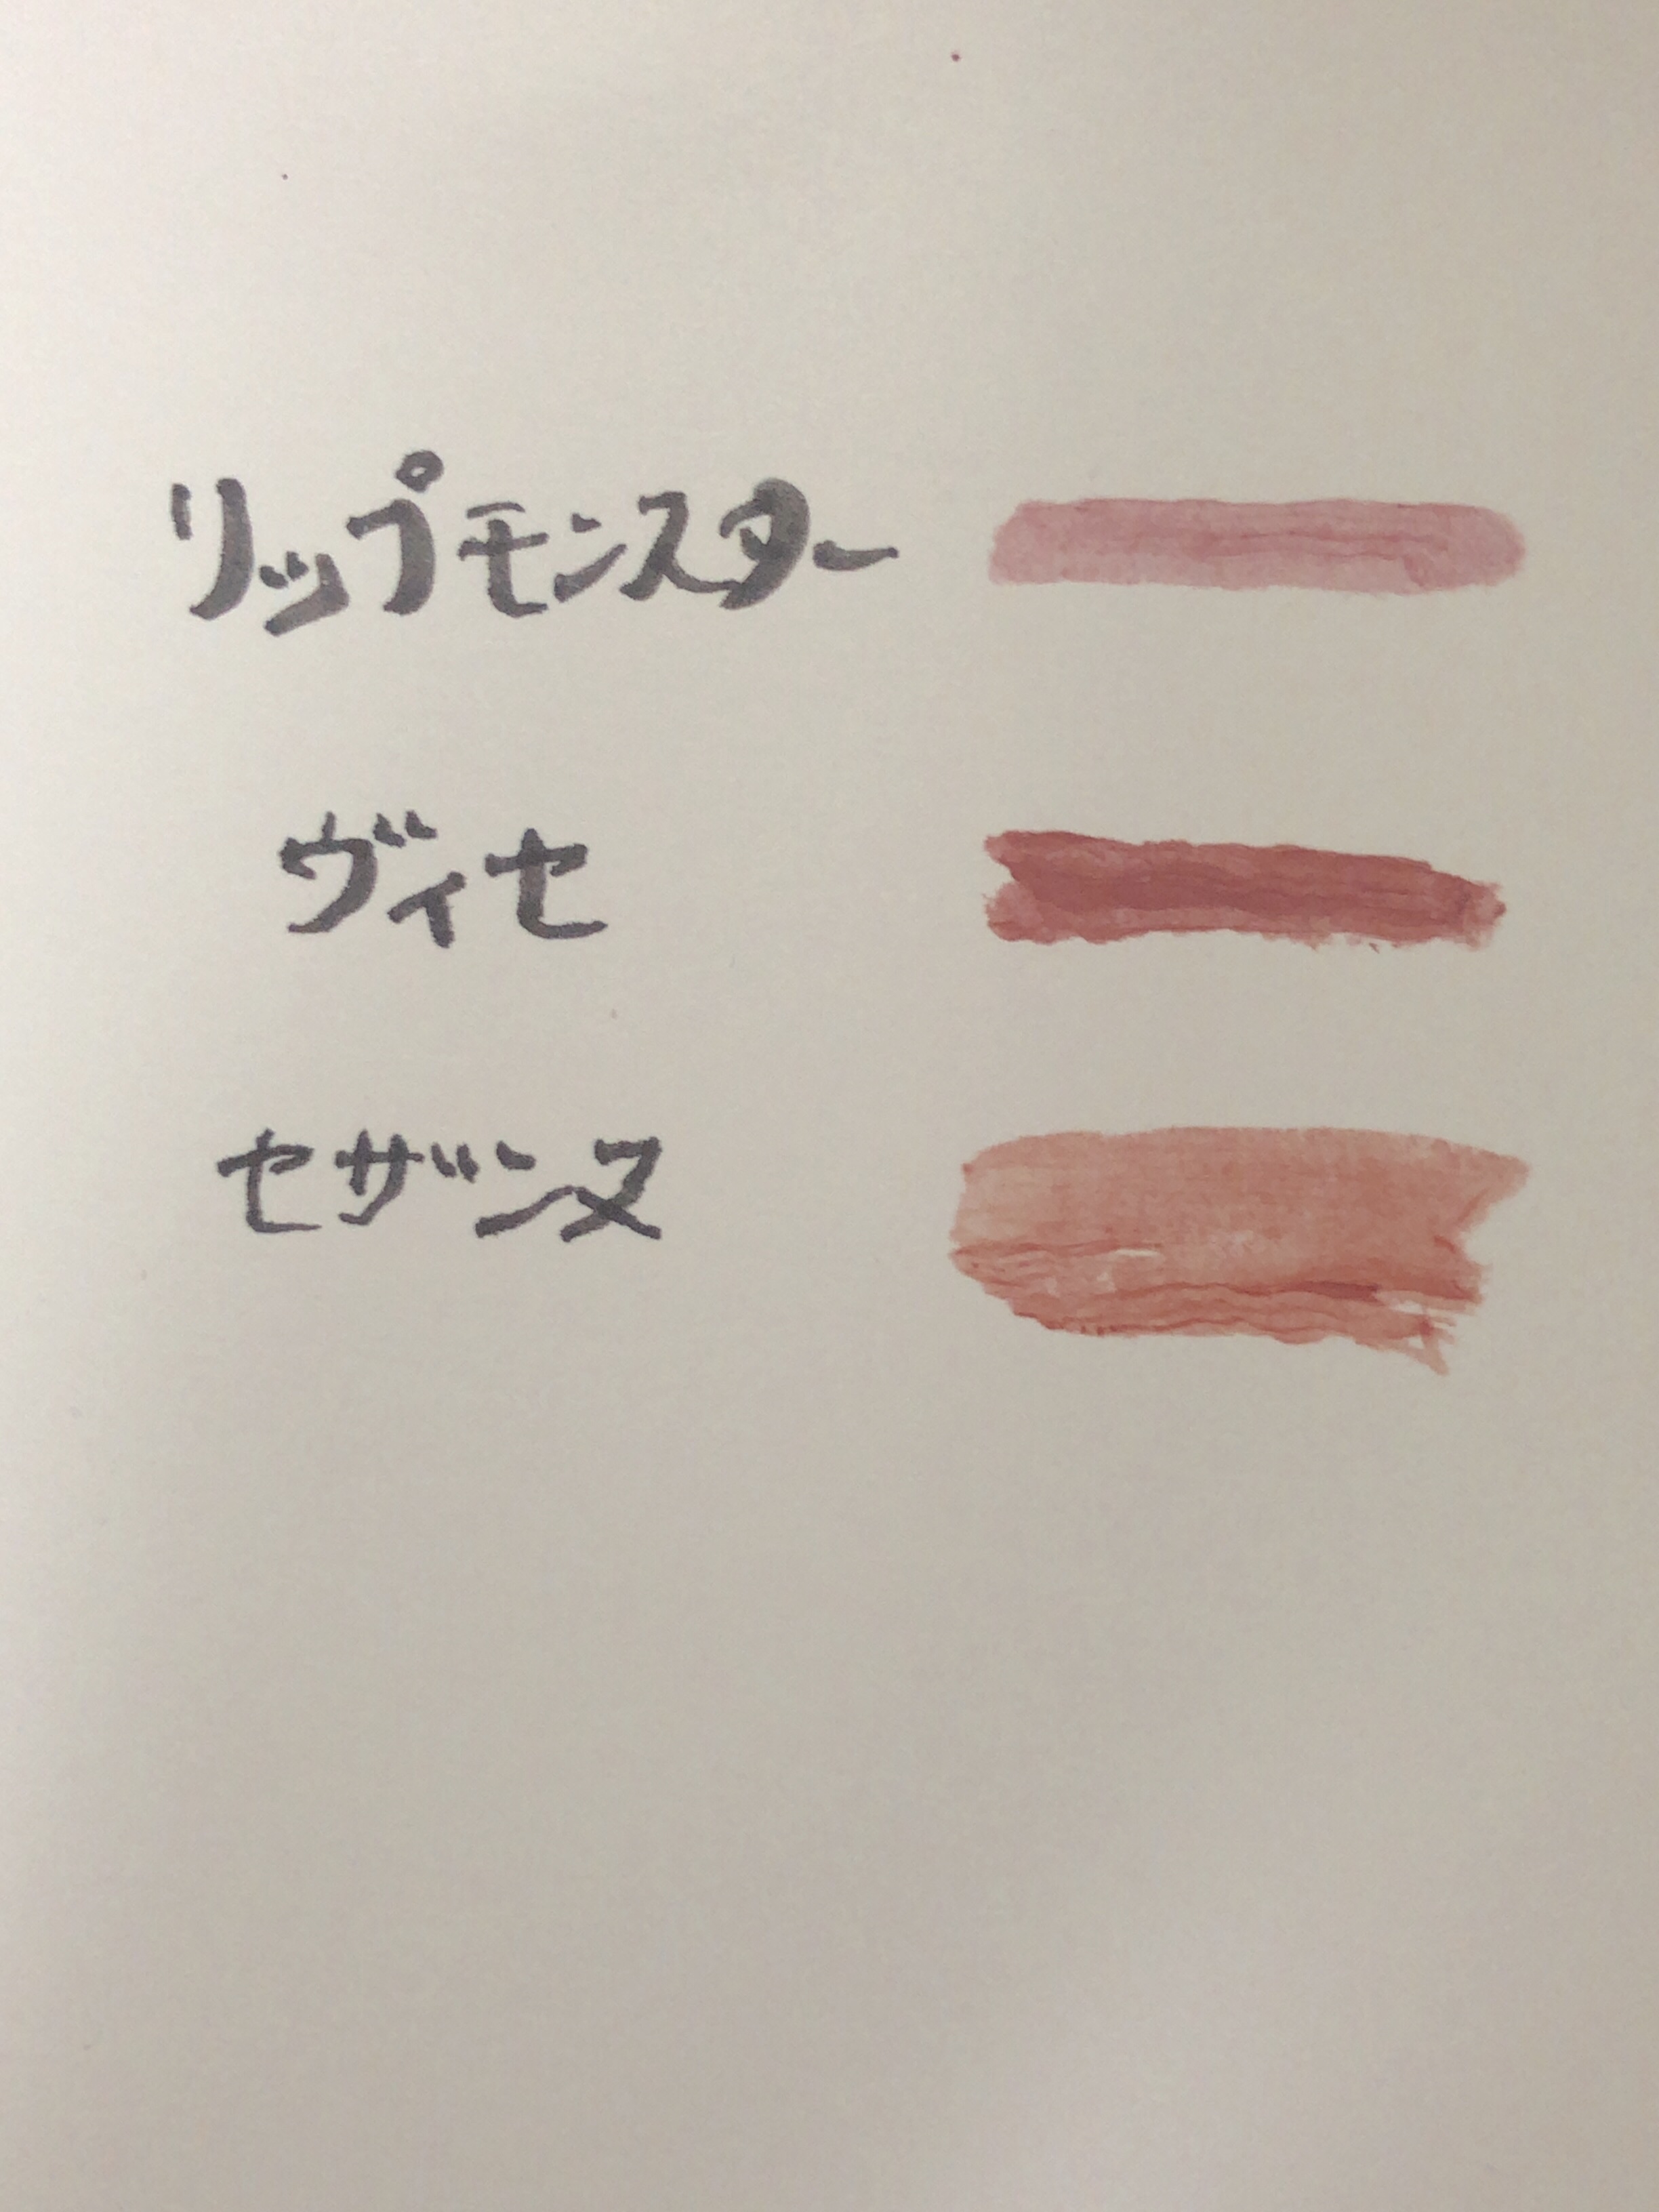 リップモンスター
ヴィセ
セザンヌ